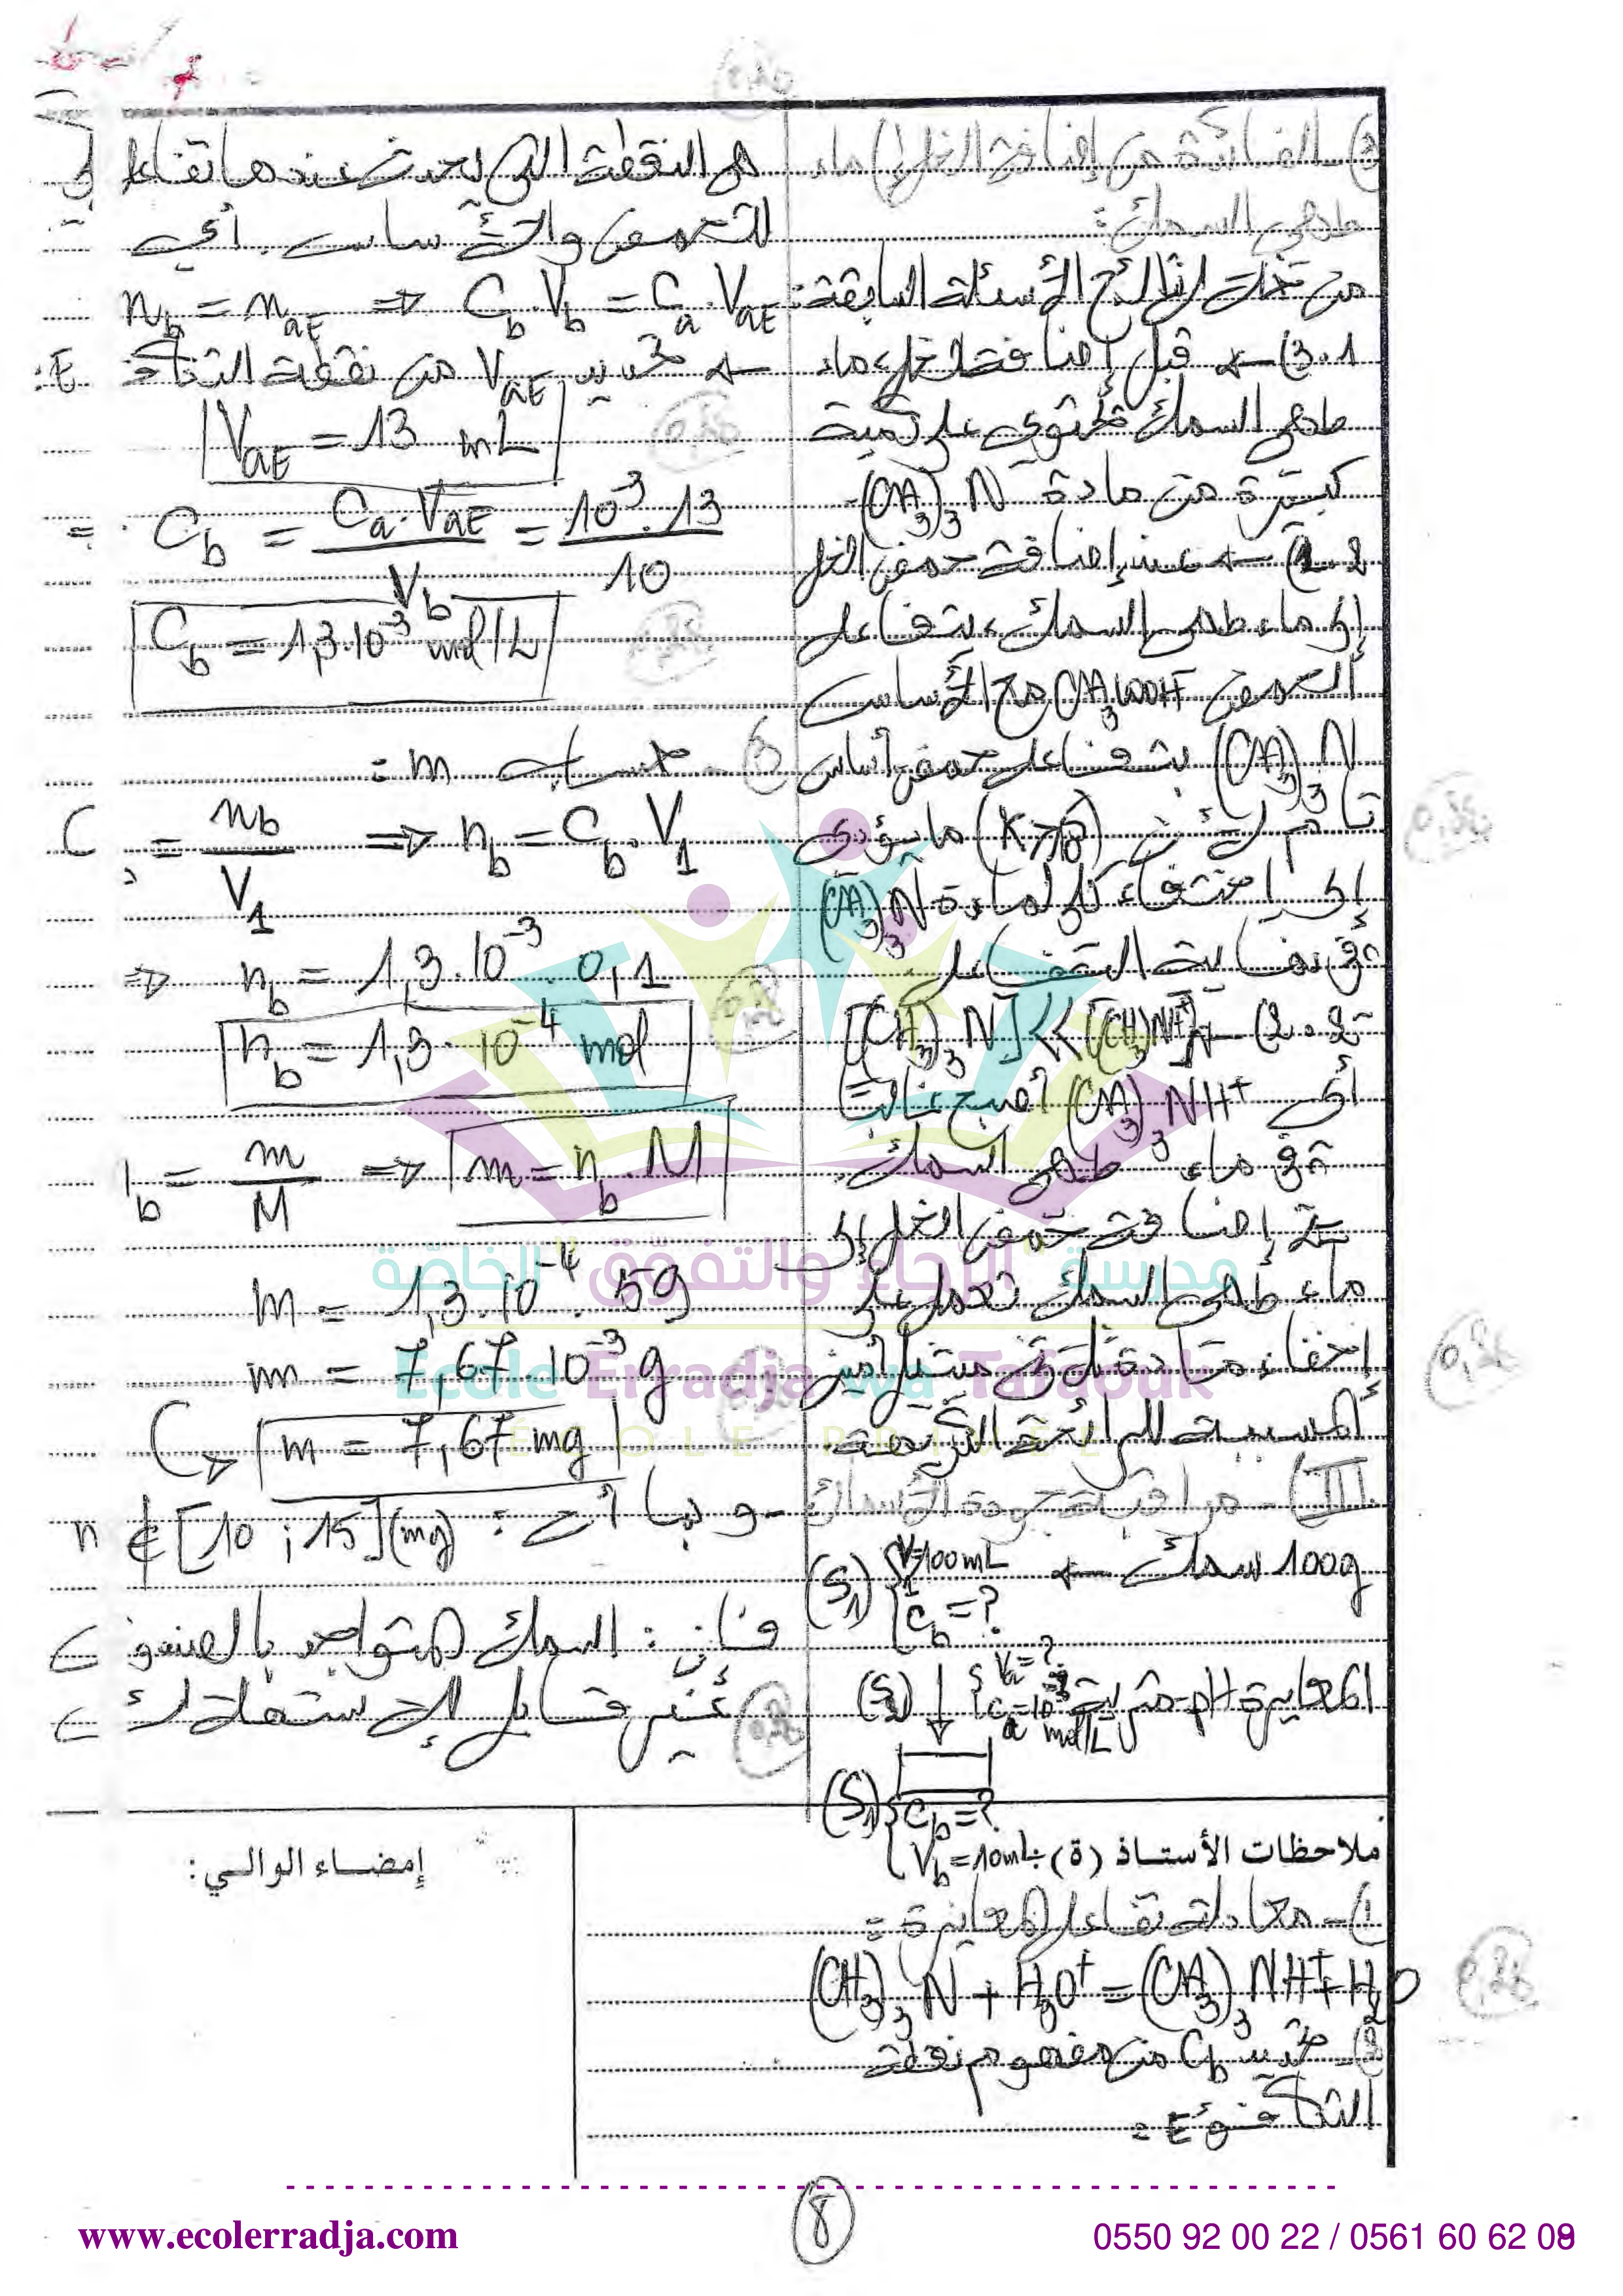 3) الفائدة من إضافة الخل إلى ماء
طهي السمك:
من خلال نتائج الأسئلة السابقة:
3.1) ← قبل إضافة الخل، ماء
طهي السمك تحتوي على كمية
كبيرة من مادة (CH3)3N.
2.2) ← عند إضافة حمض الخل
إلى ماء طهي السمك، يتفاعل
الحمض CH3COOH مع الأساس
(CH3)3N بتفاعل حمض أساس
تام لأن (K > 10 ) ما يؤدي
0,25
إلى اختفاء كل مادة (CH3)3N
في نهاية التفاعل.
2.2) - [(CH3)3N] << [(CH3)3NH+]
أي (CH3)3NH+ أصبح غالب
في ماء طهي السمك.
إضافة حمض الخل إلى
ماء طهي السمك تعمل على
إخفاء مادة ثلاثي ميثيل أمين
0,25
المسببة للرائحة الكريهة
III) - مراقبة جودة الأسماك
100g سمك ← (S1) { V1=100mL
Cb = ?
المعايرة pH مترية (Sa) { Va = ?
Ca = 10-3 mol/L
(S1) { Cb = ?
Vb = 10mL
ملاحظات الأستاذ (ة) :
1) - معادلة تفاعل المعايرة =
(CH3)3N + H3O+ = (CH3)3NH+ + H2O
0,25
2) - حساب Cb من مفهوم نقطة
التكافؤ E =
هي النقطة التي يحدث عندها تفاعل
للحمض والأساس. أي
nb = naE ⇒ Cb.Vb = Ca.VaE
← نحسب VaE من نقطة التكافؤ E:
VaE = 13 mL
0,25
Cb = Ca.VaE / Vb = 10-3.13 / 10
Cb = 1,3.10-3 mol/L
0,25
3) - حساب m =
C = nb / V1 ⇒ nb = Cb.V1
⇒ nb = 1,3.10-3 . 0,1
nb = 1,3.10-4 mol
nb = m / M ⇒ m = nb.M
m = 1,3.10-4 . 59
m = 7,67.10-3 g
m = 7,67 mg
- وبما أن: m ∉ [10 ; 15] (mg)
فإن: السمك المتواجد بالصندوق
غير قابل للاستهلاك
إمضـاء الوالـي:
مدرسة "الرجاء والتفوّق" الخاصّة
Ecole Erradja wa Tafaouk
ÉCOLE PRIVÉE
8
www.ecolerradja.com
0550 92 00 22 / 0561 60 62 09